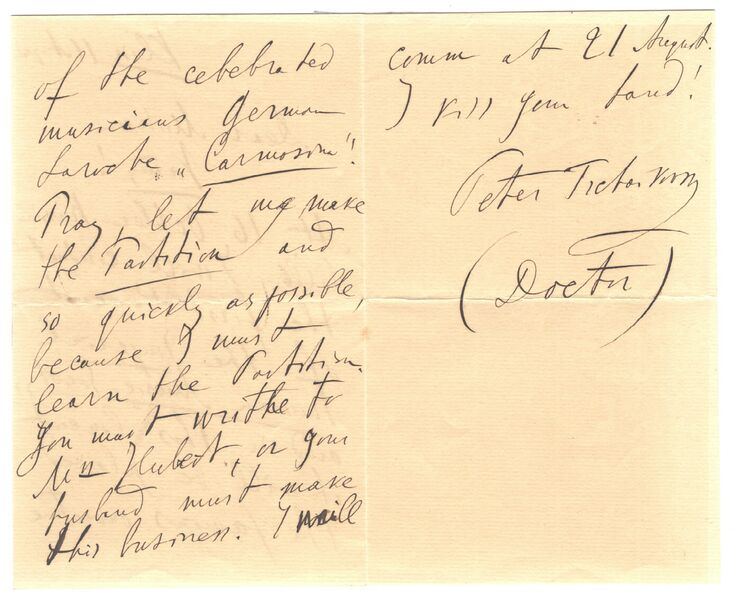 of the cebebrated
musicians German
Laroche „Carmosina"!
Pray, let me make
the Partition and
so quickly as possible,
because I must
learn the Partition.
You must writhe to
Mrs Hubert, or your
husband must make
this business. I will
comm at 21 August.
I kiss your hand!
Peter Tschaikovsky
(Doctor)